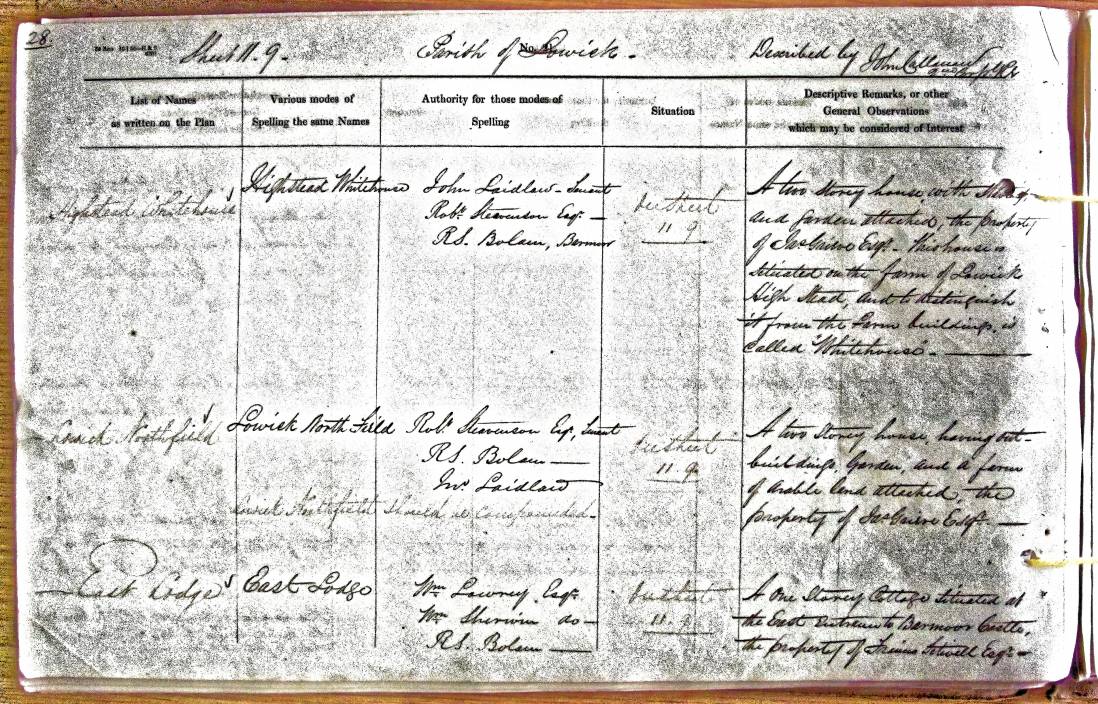 28.
Sheet 11. 9.
Parish of Lowick.
Described by John
List of Names
as written on the Plan
Various modes of
Spelling the same Names
Authority for those modes of
Spelling
Situation
Descriptive Remarks, or other
General Observations
which may be considered of Interest
Highstead Whitehouse
Highstead Whitehouse
John Laidlaw - Tenant
Robt. Stevenson Esqr. —
R.S. Bolam, Barmoor
On Sheet
11 9
A two Storey house, with
and Garden attached, the property
of Jas Grieve Esqr. This house is
Situated on the farm of Lowick
High Stead, and to distinguish
it from the Farm buildings, is
Called "Whitehouse". —
Lowick Northfield
Lowick North Field
Robt. Stevenson Esqr., Tenant
R.S. Bolam —
Jno. Laidlaw
On Sheet
11 9
A two Storey house, having out-
buildings, Garden, and a farm
of arable land attached, the
property of Jas Grieve Esqr. —
Lowick Northfield should be compounded.
East Lodge
East Lodge
Wm. Lowrey Esqr.
Wm. Sherwin do —
R.S. Bolam —
On Sheet
11. 9
A One Storey Cottage Situated at
the East Entrance to Barmoor Castle,
the property of Francis Sitwell Esqr. —